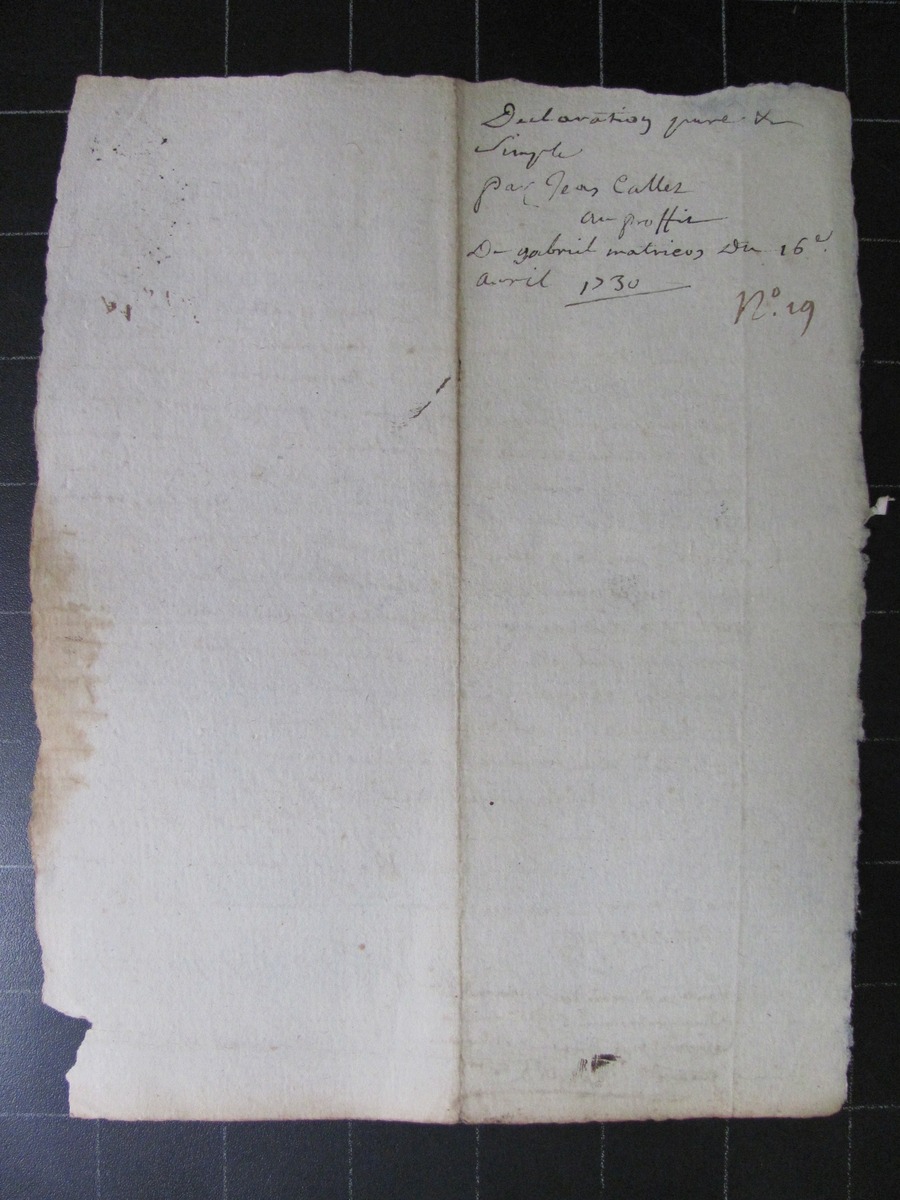 Declaration pure &
Simple
par Jean Callet
au proffit
De gabriel matricos Du 16e
Avril 1730
No. 19